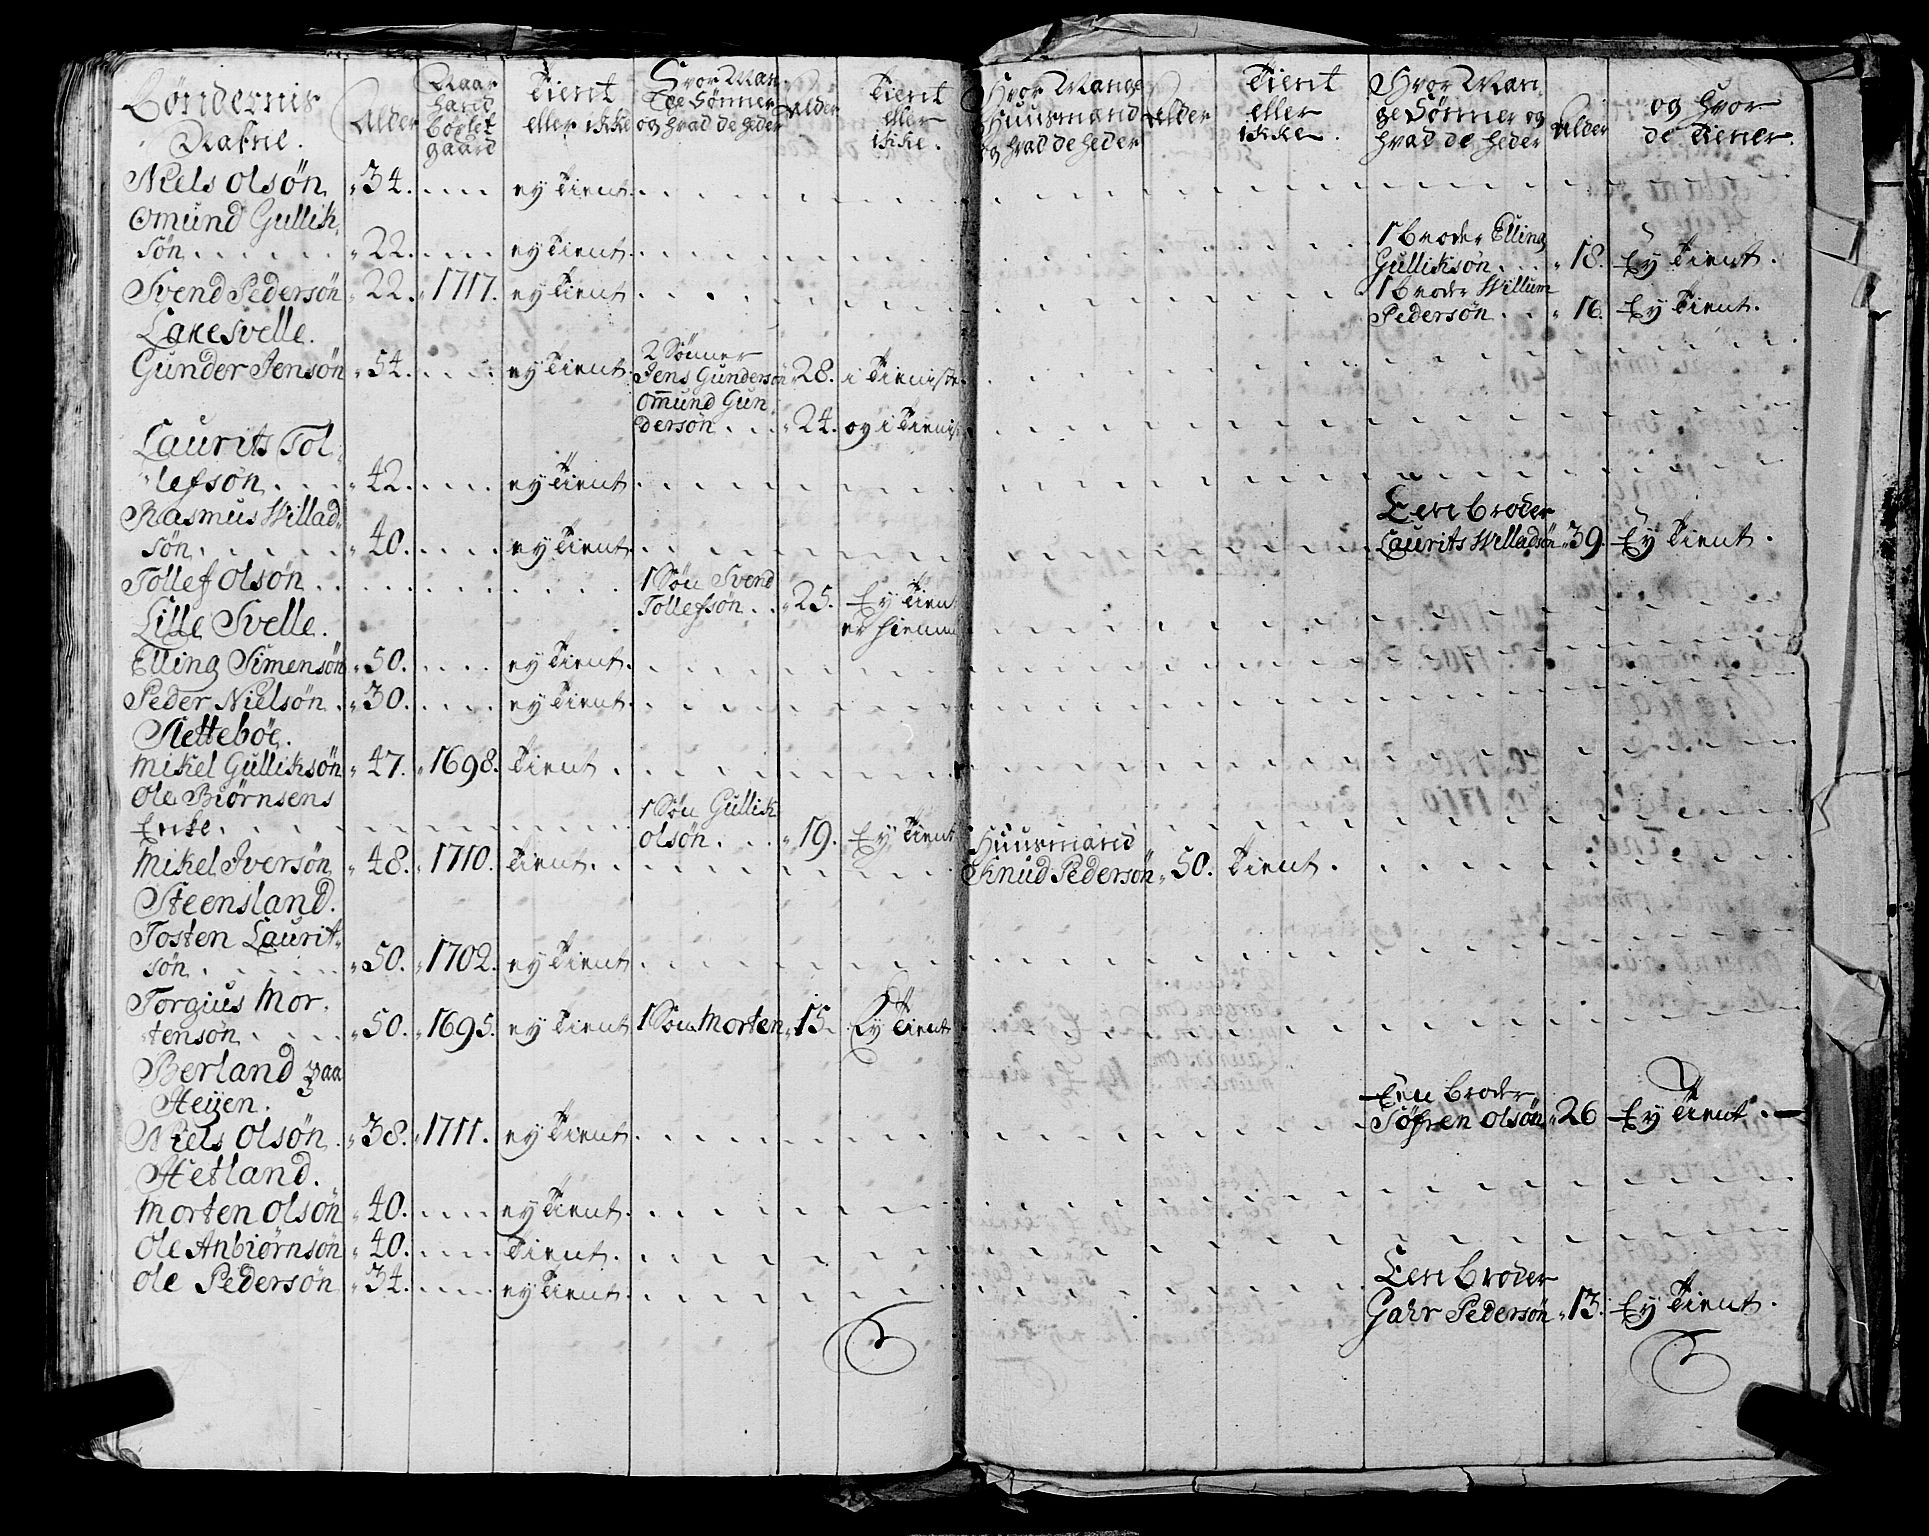 Bøndernis Nafne. Alder Naar hand bøxlet gaard Tient eller ikke Hvor Mange Sønner og hvad de heder Alder Tient eller ikke. Hvor Mange Huusmænd og hvad de heder Alder Tient eller ikke. Hvor Mange Sønner og hvad de heder Alder og hvor de tiener.
Niels Olsøn 34. ey Tient.
Omund Gullik-
søn 22. ey Tient. 1 broder Elling Gulliksøn 18. Ey Tient.
Svend Pedersøn 22. 1717. ey Tient 1 broder Willum Pedersøn 16. Ey Tient.
Lakesvelle.
Gunder Jensøn 54. ey Tient. 2 Sønner
Jens Gundersøn 28. i Tieniste.
Omund Gun-
dersøn 24. og i Tienist
Laurits Tol-
lefsøn 42. ey Tient
Rasmus Willad-
søn 40. ey Tient. Een broder
Laurits Willadsøn 39. Ey Tient.
Tollef Olsøn 1 Søn Svend
Tollefsøn 25. Ey Tient
er hiemme
Lille Svelle.
Elling Simensøn 50. ey Tient.
Peder Nielsøn 30. ey Tient.
Slettebøe.
Mikel Gulliksøn 47. 1698. Tient
Ole Biørnsens
Enke. 1 Søn Gullik
Olsøn 19. Ey Tient
Mikel Iversøn 48. 1710. Tient. Huusmand
Knud Pedersøn 50. Tient.
Steensland.
Tosten Laurit-
søn 50. 1702. ey Tient
Torgius Mor-
tensøn 50. 1695. ey Tient 1 Søn Morten 15. Ey Tient
Berland paa
Heyen.
Niels Olsøn 38. 1711. ey Tient Een broder
Søfren Olsøn 26 Ey Tient.
Hetland.
Morten Olsøn 40. ey Tient.
Ole Anbiørnsøn 40. Tient.
Ole Pedersøn 34. ey Tient. Een broder
Gahr Pedersøn 13. Ey Tient.